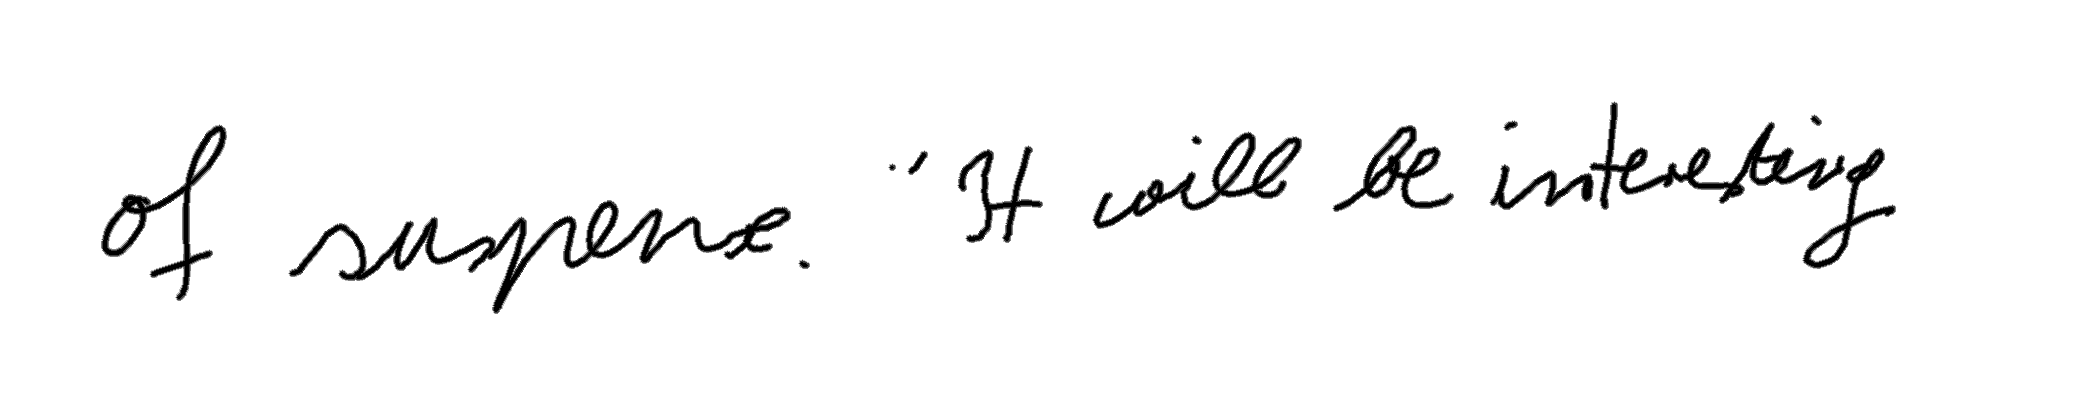 of suspense. "It will be interesting